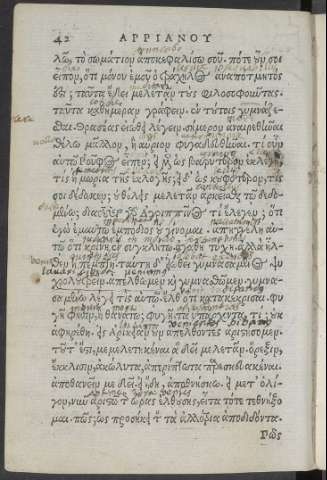 42 ΑΡΡΙΑΝΟΥ
λῶ, τὸ σωμάτιον ἀποκεφαλίσω σου. πότε οὖν σοι
εἶπον, ὅτι μόνου ἐμοῦ ὁ τράχηλος ἀναπότμητος
ἐστι; ταῦτα ἔδει μελετᾶν τοὺς φιλοσοφοῦντας.
ταῦτα καθημέραν γράφειν. ἐν τούτοις γυμνάζε-
σθαι. Θρασέας εἰώθει λέγειν, σήμερον ἀναιρεθῆναι
θέλω μᾶλλον, ἢ αὔριον φυγαδευθῆναι. τί οὖν
αὐτῷ Ῥοῦφος εἶπεν; εἰ μὲν ὡς βαρύτερον ἐκλέγῃ,
τίς ἡ μωρία τῆς ἐκλογῆς; εἰ δ' ὡς κουφότερον, τίς
σοι δέδωκεν; οὐ θέλεις μελετᾶν ἀρκεῖσθαι τῷ δεδο-
μένῳ; διὰ τοῦτο γὰρ Ἀγριππῖνος τί ἔλεγεν; ὅτι
ἐγὼ ἐμαυτῷ ἐμπόδιος οὐ γίνομαι. ἀπηγγέλη αὐ-
τῷ ὅτι κρίνῃ ἐν συγκλήτῳ. ἀγαθῇ τύχῃ. ἀλλὰ ἦλ-
θεν ἡ πέμπτη. ταύτῃ δ' εἰώθει γυμνασάμενος ψυ-
χρολουτρεῖν. ἀπέλθωμεν καὶ γυμνασθῶμεν. γυμνα-
σαμένῳ λέγει τις αὐτῷ ἐλθὼν ὅτι κατακέκρισαι. φυ-
γῇ φησίν, ἢ θανάτῳ; φυγῇ. τὰ ὑπάρχοντα, τί; οὐκ
ἀφῃρέθη. εἰς Ἀρίκειαν οὖν ἀπελθόντες ἀριστήσωμεν.
τοῦτ' ἔστι, μεμελετηκέναι ἃ δεῖ μελετᾶν. ὄρεξιν,
ἔκκλισιν, ἀκώλυτα, ἀπερίπτωτα παρεσκευακέναι.
ἀποθανεῖν με δεῖ. εἰ ἤδη, ἀποθνήσκω. εἰ μετ' ὀλί-
γον, νῦν ἀριστῶ τῆς ὥρας ἐλθούσης, εἶτα τότε τεθνήξο-
μαι. πῶς; ὡς προσήκει τὸν τὰ ἀλλότρια ἀποδιδόντα.
Πῶς